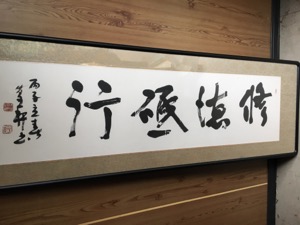 修德砥行
丙子立春